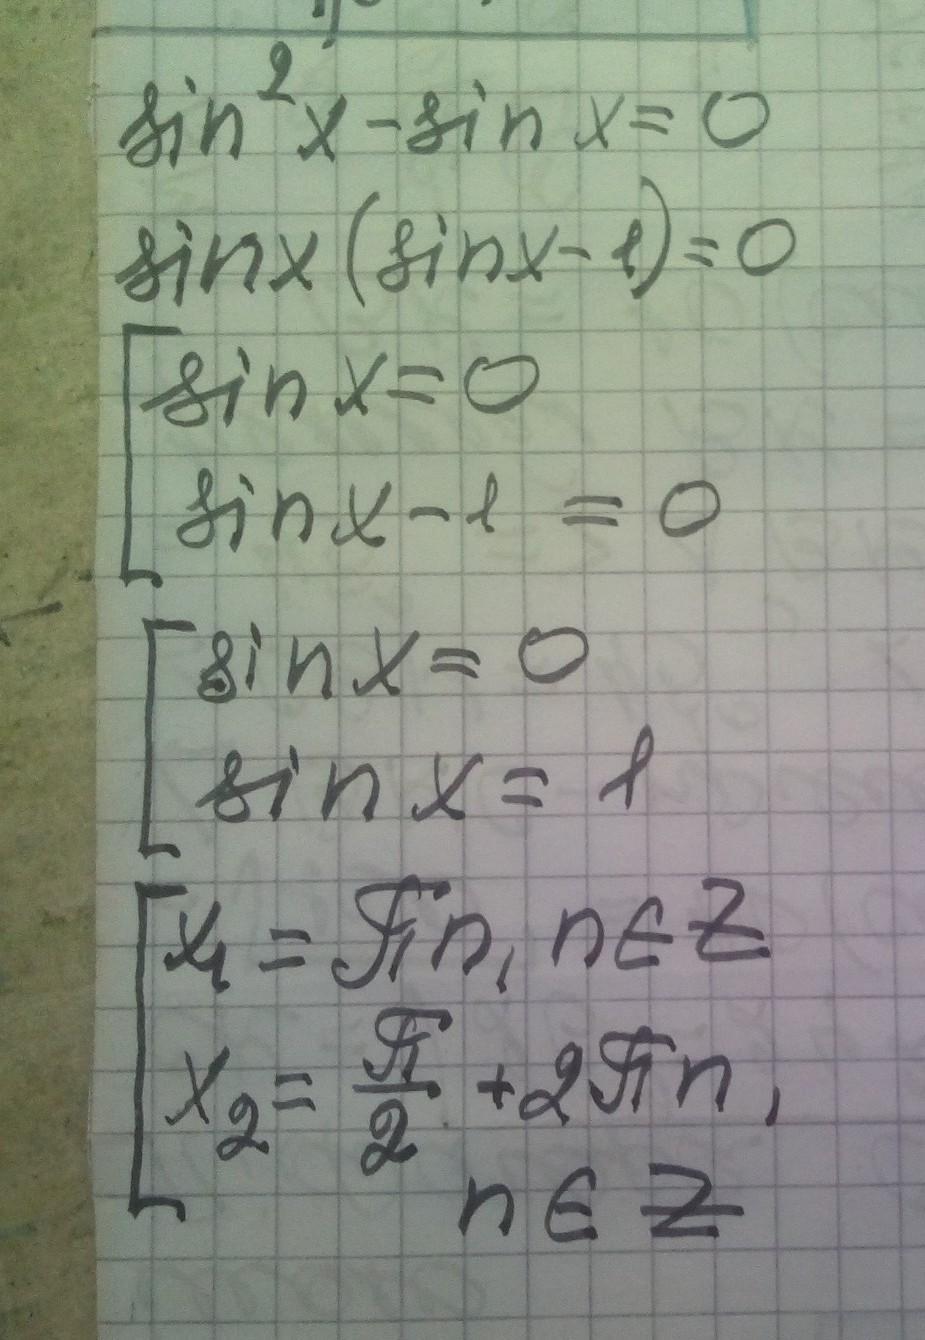 sin²x - sin x = 0
sinx(sinx - 1) = 0
sin x = 0
sinx - 1 = 0
sin x = 0
sin x = 1
x₁ = πn, n ∈ Z
x₂ = π/2 + 2πn,
n ∈ Z